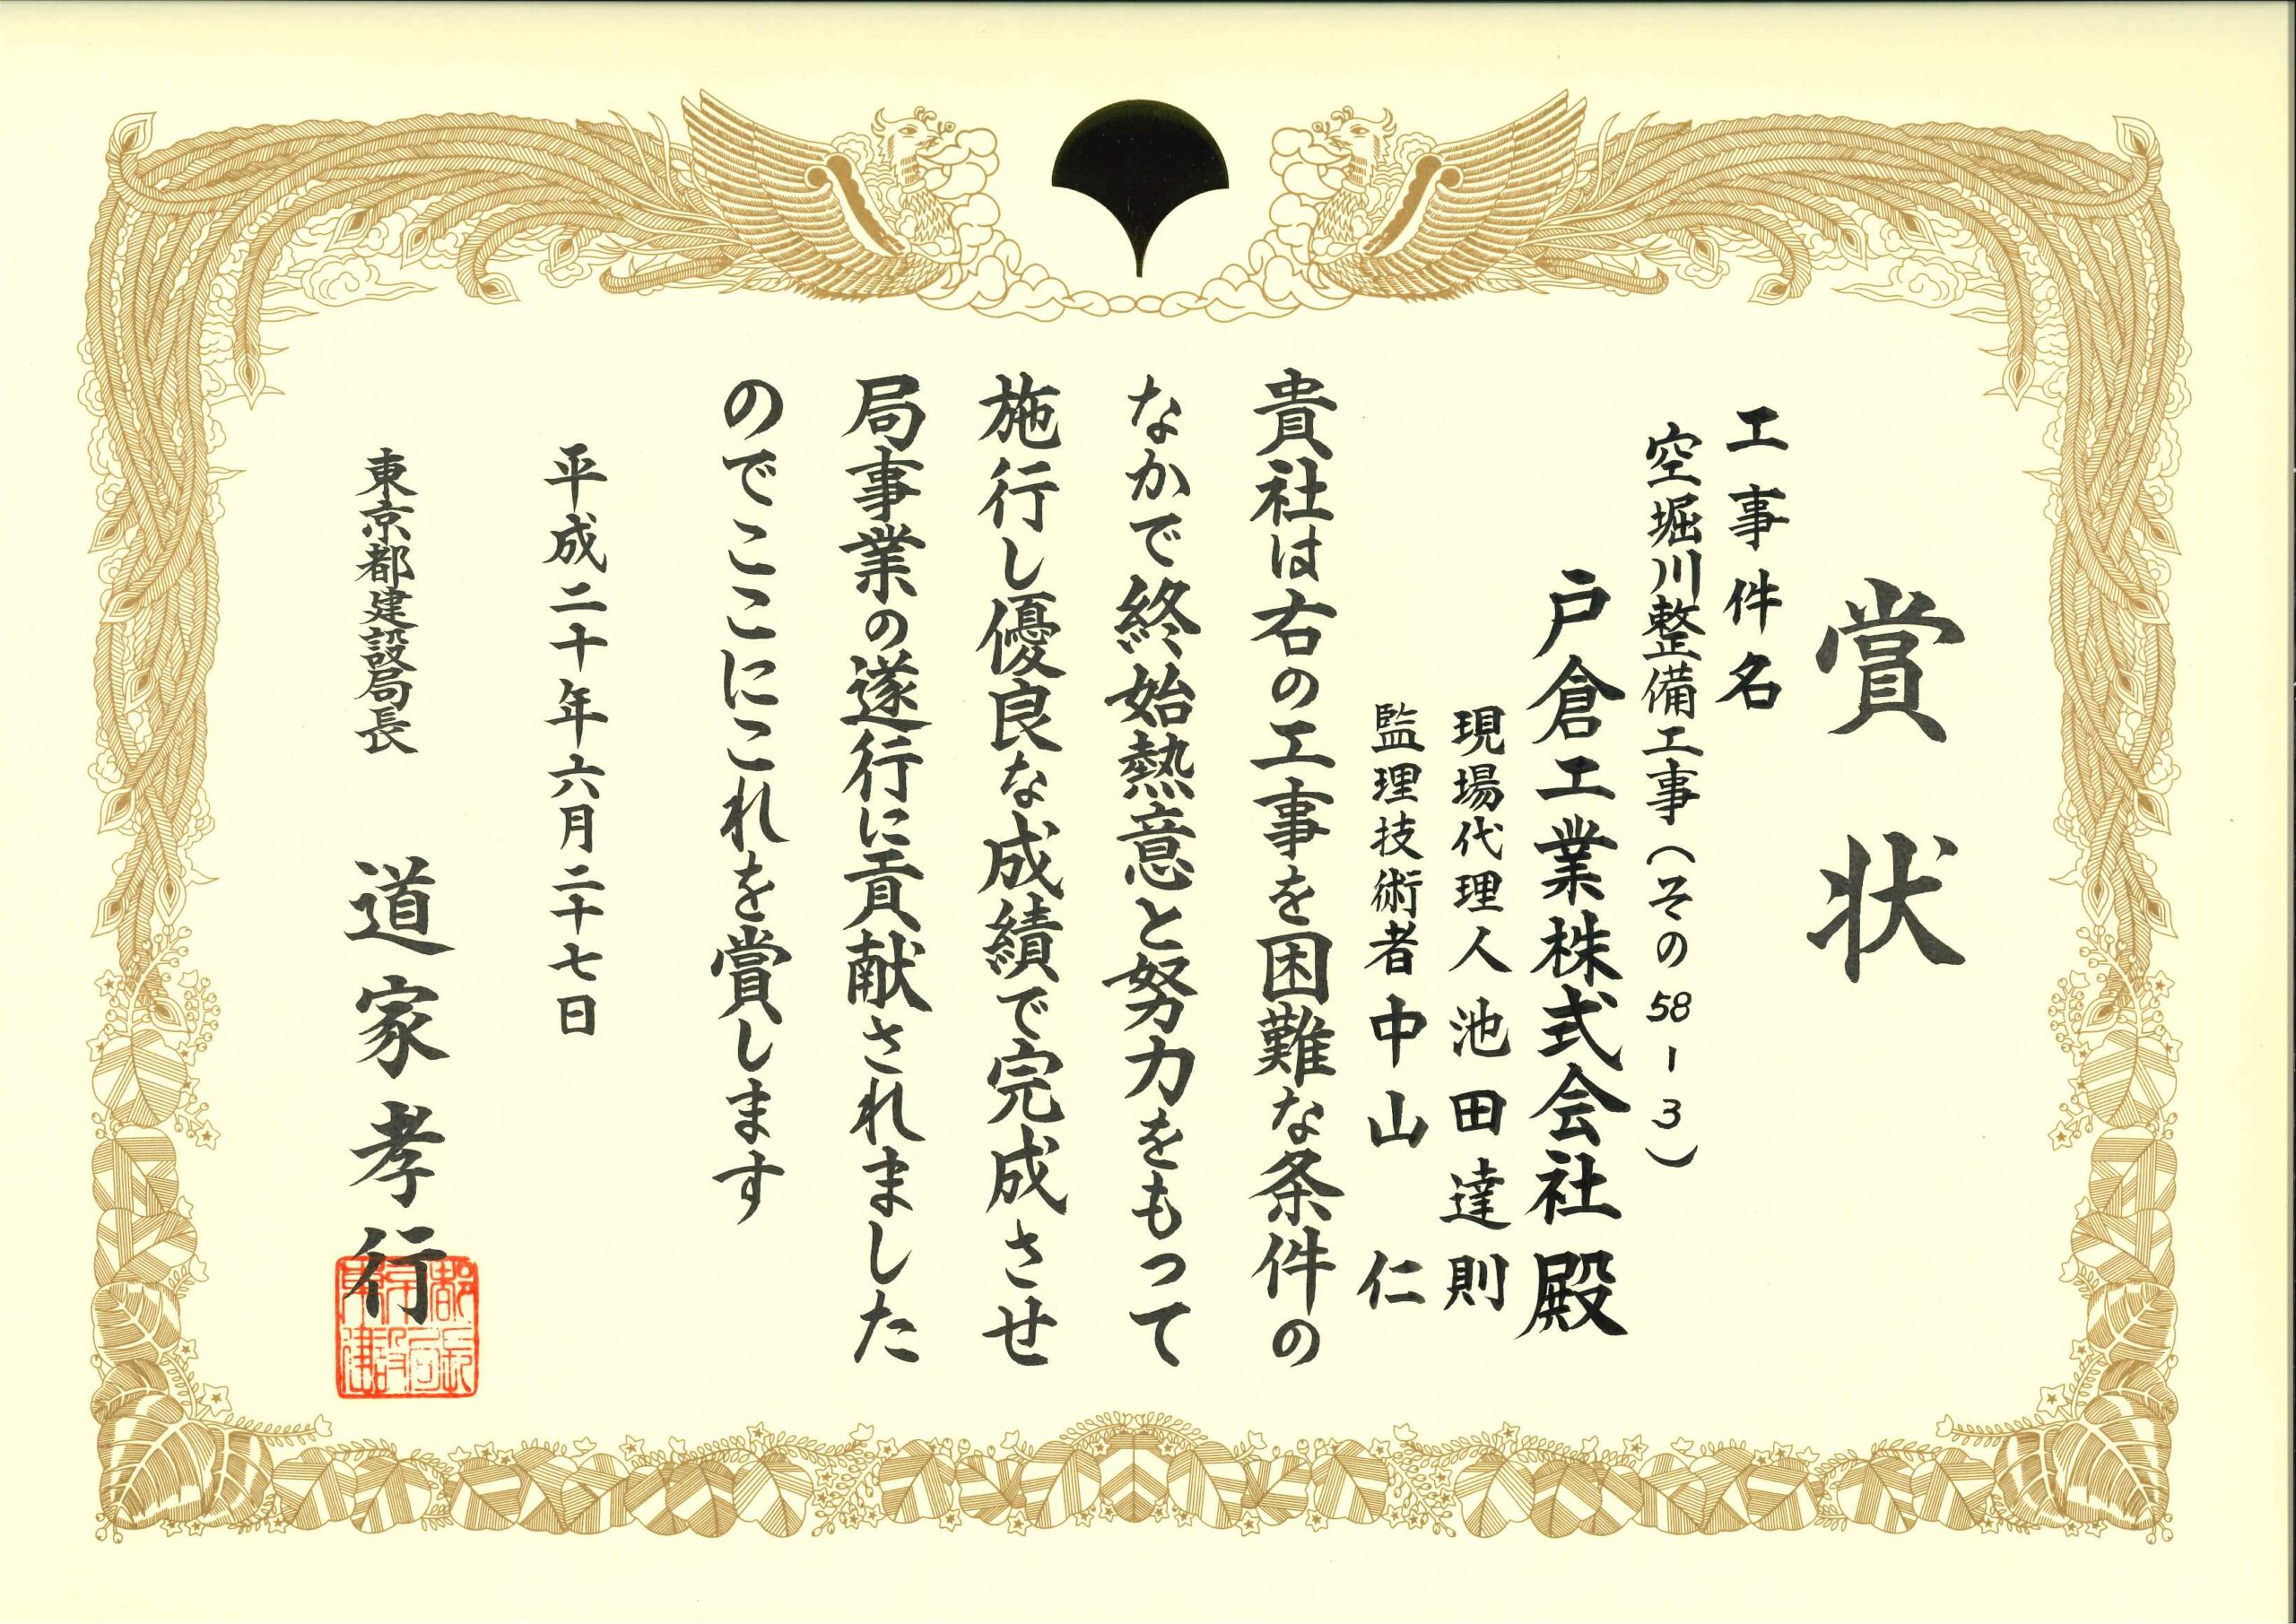 賞状
工事件名
空堀川整備工事（その58-3）
戸倉工業株式会社殿
現場代理人池田達則
監理技術者中山仁
貴社は右の工事を困難な条件の
なかで終始熱意と努力をもって
施行し優良な成績で完成させ
局事業の遂行に貢献されました
のでここにこれを賞します
平成二十年六月二十七日
東京都建設局長 道家孝行